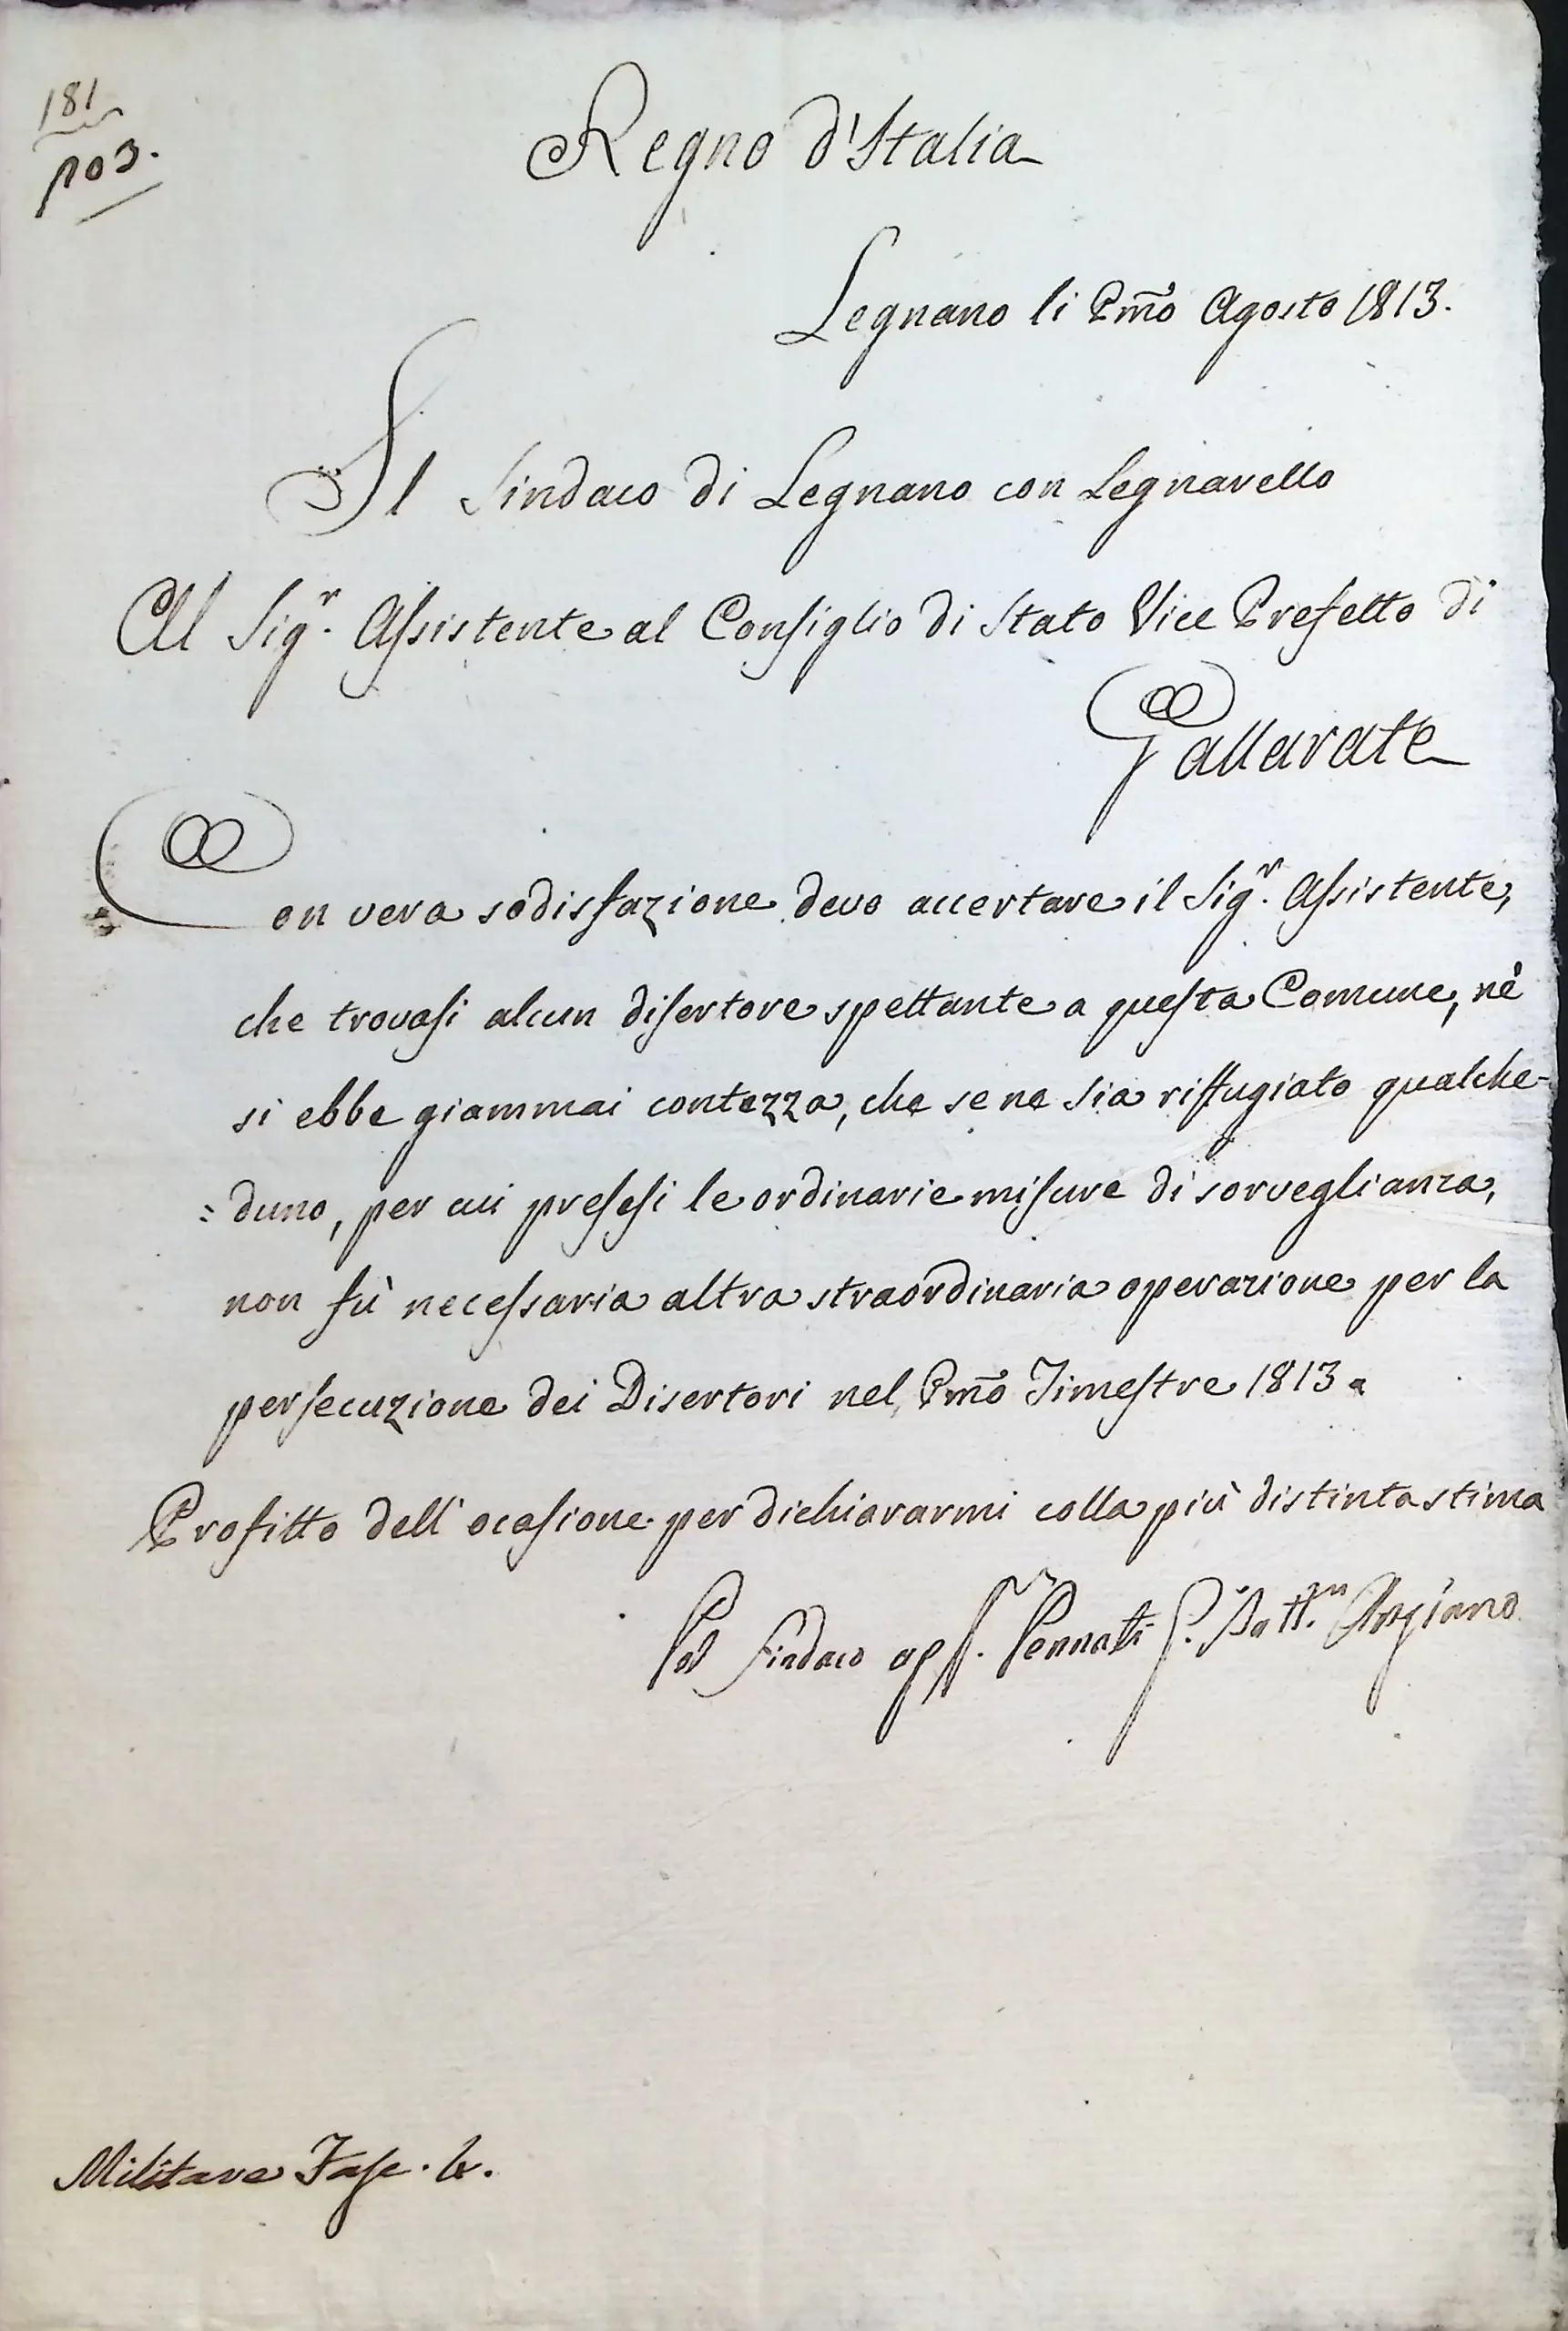 181
P 103.
Regno d'Italia
Legnano li Pm̃o Agosto 1813.
Il Sindaco di Legnano con Legnarello
Al Sigr. Assistente al Consiglio di Stato Vice Prefetto di
Gallarate
Con vera sodisfazione devo accertare il Sigr. Assistente,
che trovasi alcun disertore spettante a questa Comune, nè
si ebbe giammai contezza, che se ne sia riffugiato qualche-
=duno, per cui presesi le ordinarie misure di sorveglianza,
non fù necessaria altra straordinaria operazione per la
persecuzione dei Disertori nel Pm̃o Timestre 1813.
Profitto dell'ocasione per dichiararmi colla più distinta stima
Pel Sindaco Pennati Batt.
Militare Fasc.